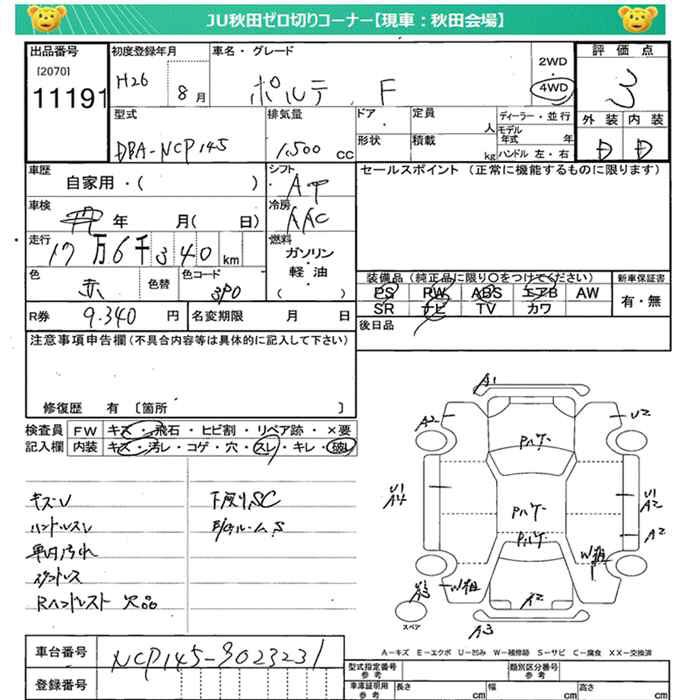 JU秋田ゼロ切りコーナー【現車：秋田会場】
出品番号
[2070]
11191
初度登録年月
H26
8月
車名・グレード
ポルテ F
2WD
4WD
評価点
3
外装 内装
D D
型式
DBA-NCP145
排気量
1,500 CC
ドア
形状
定員
人
積載
kg
ディーラー・並行
モデル年式 年
ハンドル 左・右
車歴
自家用・( )
シフト
AT
セールスポイント (正常に機能するものに限ります)
車検
年 月( 日)
冷房
AAC
走行
17万6千340km
燃料
ガソリン
・
軽油
( )
色
赤
色替
色コード
3P0
装備品 (純正品に限り○をつけてください)
PS RW ABS エアB AW
SR ナビ TV カワ
新車保証書
有・無
R券 9,340円
名変期限 月 日
後日品
注意事項申告欄(不具合内容等は具体的に記入して下さい)
修復歴 有 〔箇所 〕
検査員記入欄
FW キズ・飛石・ヒビ割・リペア跡・×要
内装 キズ・汚レ・コゲ・穴・スレ・キレ・破レ
キズU
ハンドルスレ
車内汚れ
シートスレ
Rハンドレスト 欠品
下廻りSC
E/gルームS
A1
A2
U2
Pハゲ
U1
A4
Pハゲ
Pハゲ
U1
A2
A2
W粗
A3
W粗
A2
A3
スペア
A-キズ E-エクボ U-凹み W-補修跡 S-サビ C-腐食 XX-交換済
車台番号 NCP145-9023231
登録番号
型式指定番号 参考
類別区分番号 参考
車庫証明用 参考
長さ cm
幅 cm
高さ cm